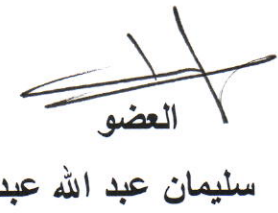 العضو
سليمان عبد الله عبد